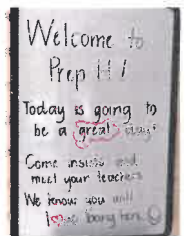 Welcome to
Prep H!
Today is going to
be a great day!
Come inside and
meet your teachers
We know you will
love being here